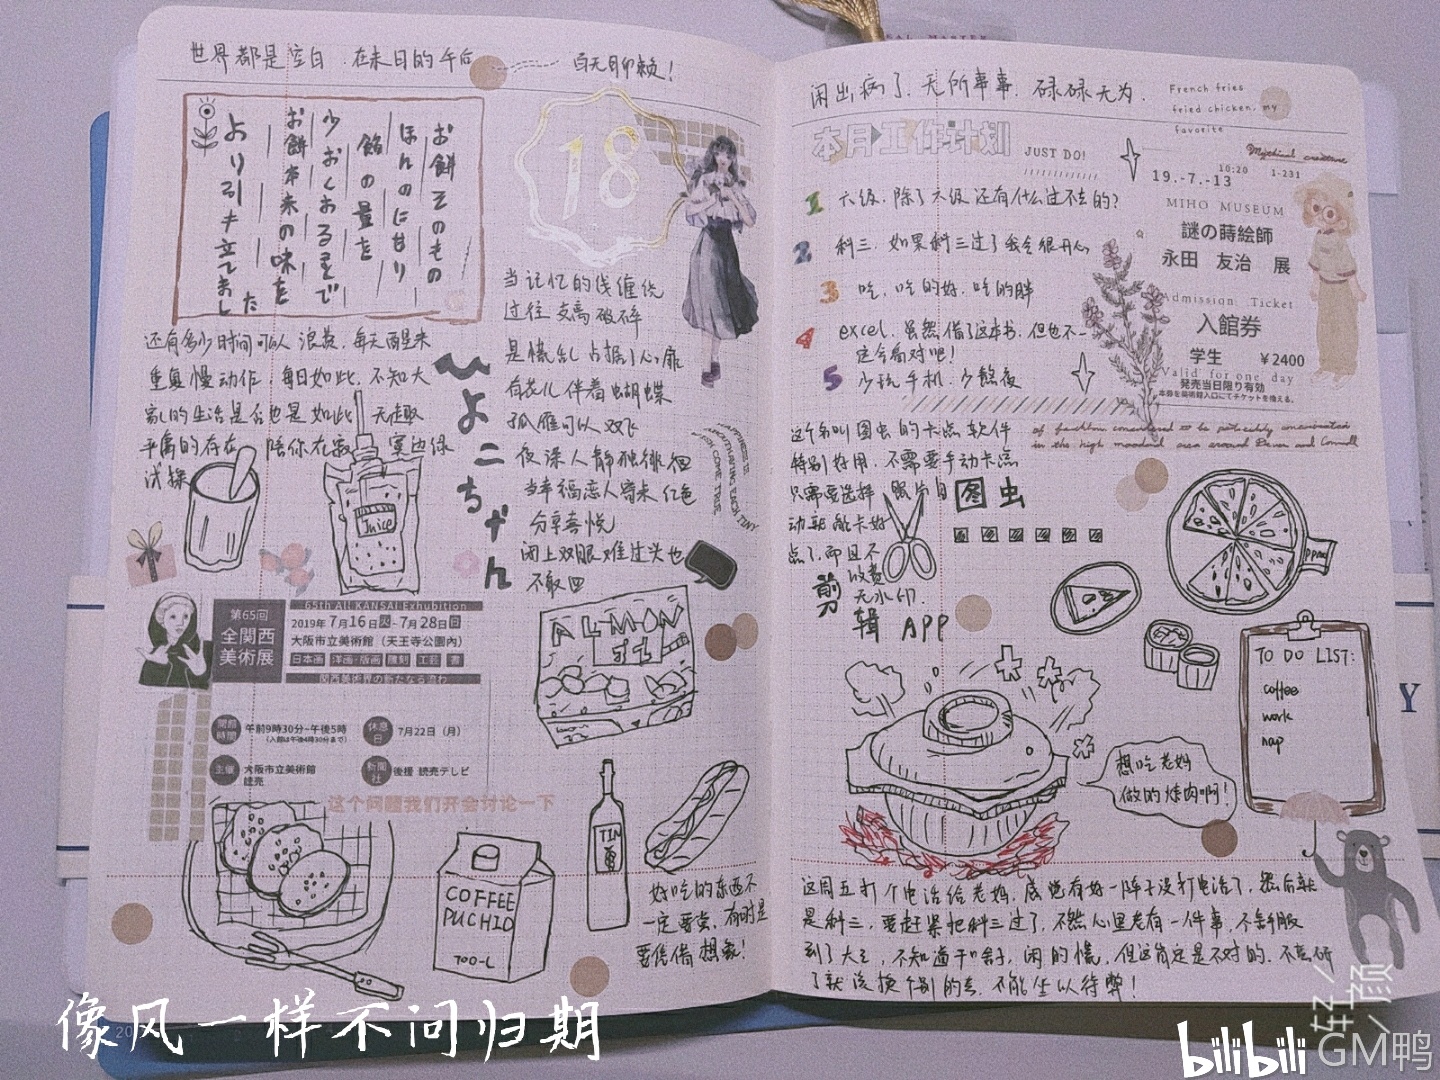 世界都是空白．在末日的午后
百无聊赖！
お餅そのもの
ほんのに甘り
餡の量を
少おくおるまで
お餅本来の味を
より引キ立てました
18
当记忆的线缠绕
过往支离破碎
是慌乱占据了心扉
有花儿伴着蝴蝶
孤雁可以双飞
夜深人静独徘徊
当幸福恋人寄来红色
分享喜悦
闭上双眼难过头也
不敢回
还有多少时间可以浪费，每天醒来
重复慢动作，每日如此，不知大
家的生活是否也是如此，无趣
平庸的存在
陪你在寂寞边缘
试探
ひよこちゃん
Juice
第65回
全関西
美術展
65th All KANSAI Exhubition
2019年7月16日火-7月28日日
大阪市立美術館（天王寺公園内）
日本画 洋画·版画 雕刻 工芸 書
関西美術界の新たなる流わ
開館時間
午前9時30分~午後5時
（入館は午後4時30分まで）
休息日
7月22日（月）
主催
大阪市立美術館
読売
新聞社
後援 読売テレビ
这个问题我们开会讨论一下
ALMON
COFFEE
PUCHIO
700-L
TIN
好吃的东西不
一定要尝，有时是
要凭借想象！
闲出病了．无所事事．碌碌无为．
French fries
fried chicken, my
favorite
本月工作计划
JUST DO!
1 六级．除了六级还有什么过不去的？
2 科三．如果科三过了我会很开心
3 吃，吃的好，吃的胖
4 excel．虽然借了这本书，但也不一
定会看对吧！
5 少玩手机．少熬夜
Mystical creature
10:20 1-231
19.-7.-13
MIHO MUSEUM
謎の蒔絵師
永田 友治 展
Admission Ticket
入館券
学生 ¥2400
Valid for one day
発売当日限り有効
本券を美術館入口にてチケットを換える。
这个名叫图虫的卡点软件
特别好用．不需要手动卡点
只需要选择照片自
动就能卡好
点了，而且不
收费
无水印．
图虫
剪辑 APP
PIZZA
TO DO LIST:
coffee
work
nap
想吃老妈
做的烤肉啊！
这周五打个电话给老妈，感觉有好一阵子没打电话了，然后就
是科三，要赶紧把科三过了，不然心里老有一件事，不舒服
到了大三，不知道干啥子，闲的慌，但这肯定是不对的．不考研
了就该换个别的去，不能坐以待弊！
像风一样不问归期
轻颜
bilibili GM鸭